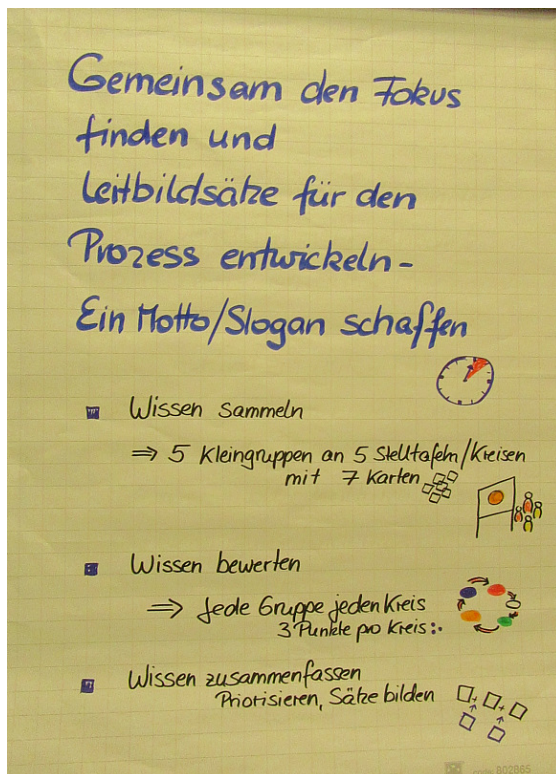 Gemeinsam den Fokus
finden und
Leitbildsätze für den
Prozess entwickeln -
Ein Motto/Slogan schaffen
Wissen sammeln
⇒ 5 Kleingruppen an 5 Stelltafeln/Kreisen
mit 7 Karten
Wissen bewerten
⇒ Jede Gruppe jeden Kreis
3 Punkte pro Kreis:
Wissen zusammenfassen
Priorisieren, Sätze bilden
802865